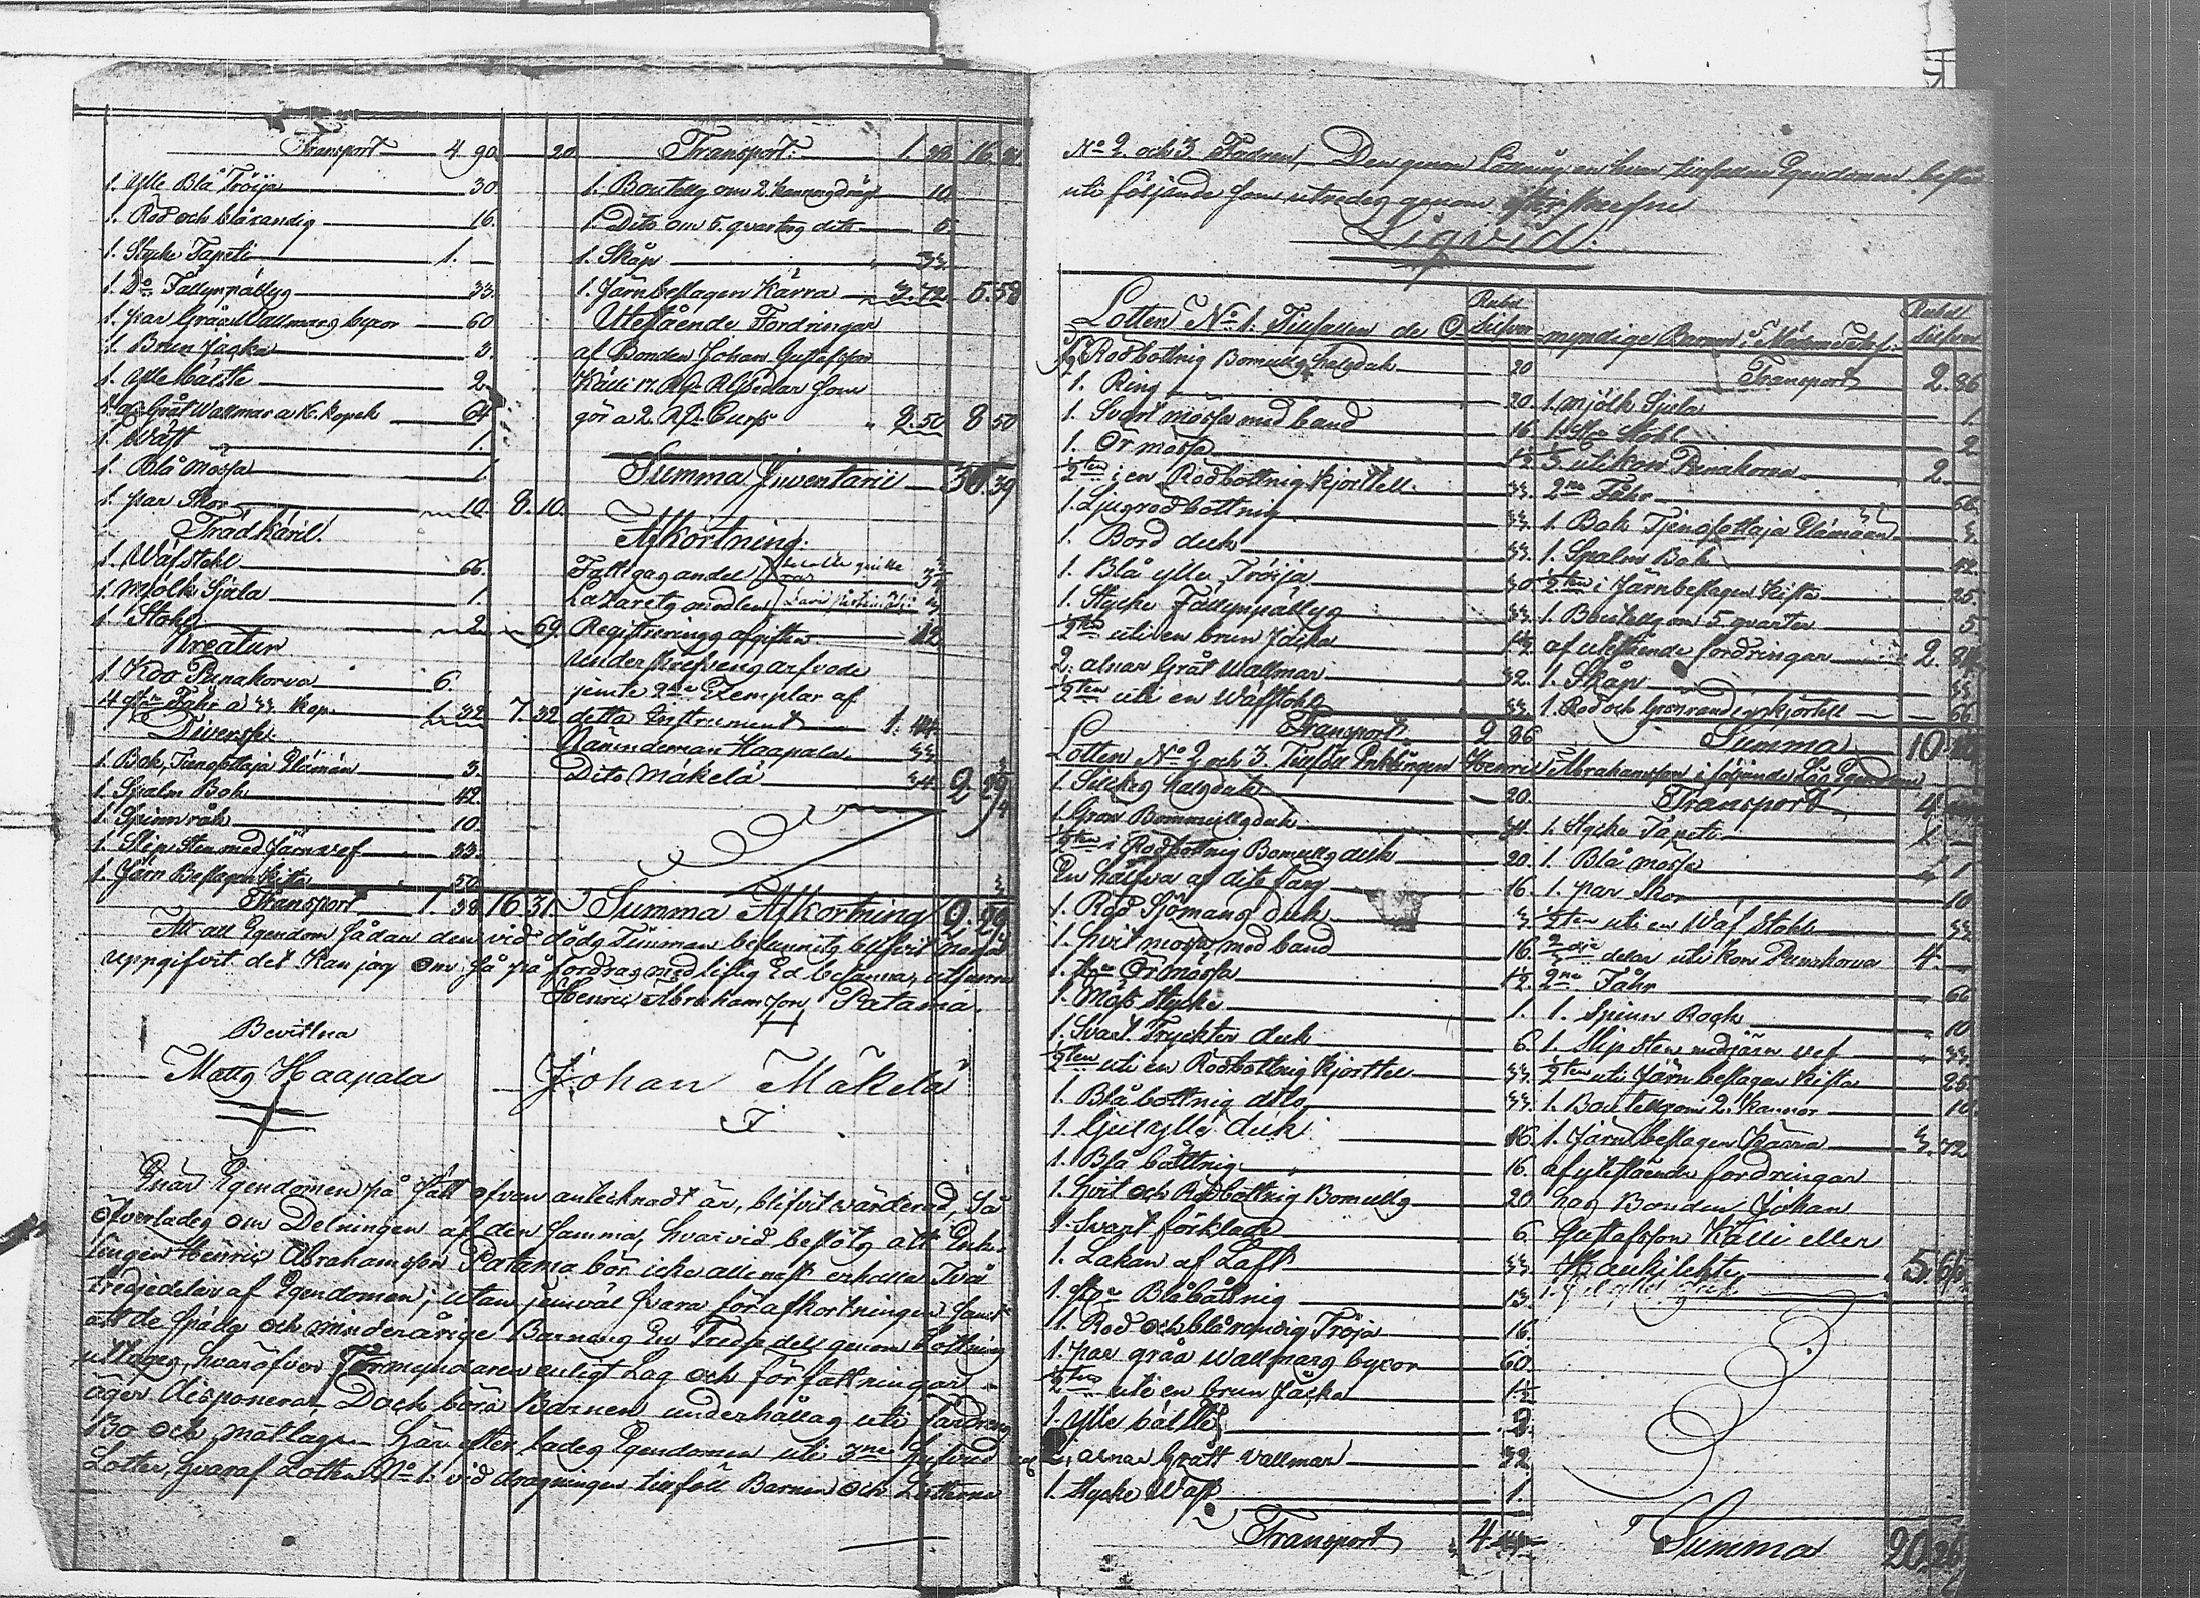 Transport 4 90. 20
1. Ylle Blå Tröija 30.
1. Röd och blårandig 16.
1. Stycke Tapeti 1.
1. Do Fällynpällys 33.
1. par Gråa Wallmans byxor 60
1. Brun Jacka 3.
1. Ylle bälte 2
4. al. Gråt Wallmar a 16. kopek 64
1. Wäft 1.
1. Blå Mössa 1
1. par Skor 10. 8. 10.
Trädkäril.
1. Wäfstohl 66.
1. Mjölk Sjåla 1.
1 Stohl 2. 69.
Kreatur
1. Koo Punakorva 6.
4 st. Fåhr a 33. Kop. 1. 32. 7. 32
Diverse.
1. Bok, Tienosottaja Elämän 3.
1. Spalm Bok 42.
1. Spinnråk 10.
1. Slip Sten med Järnvef 33.
1. Järn Beslagen kista 50.
Transport 1. 38. 16 31.
Transport: 1. 38 16. 31
1. Bouteilg om 2. kannors drägt 10.
1. Dito om 5. qvarters dito 5.
1. Skåp 33.
1. Järnbeslagen Kärra 3. 72. 5. 58
Utestående Fordringar
af Bonden Johan Gustafsson
Källi 17. Rp. RSedlar som
gör a 2. Rp. Curss 8. 50 8 50
Summa Inventarii 30. 39
Afkortning.
Fattigas andel
Lazarets medlen
Registrerings afgiften 12.
Underskrefvens arfvode
jemte 2ne Exemplar af
detta Instrument 1. 44.
Nämndeman Haapala. 33
Dito Mäkelä 34. 2. 29
Summa Afkortning 2. 29
At all Egendom sådan den vid döds Timman befunnits blifvit noga
uppgifvit det kan jag om så på fordras med liflig Ed besanna, utfärma
Henric Abrahamsson Patama.
Bevittna
Matts Haapala Johan Mäkelä
Enär Egendomen på sätt ofvan antecknadt är, blifvit wärderad, Så
öfverlades om Delningen af den samma, hvarvid beslöts att Enk-
lingen Henric Abrahamsson Patama bör icke allenast erhalla Två
tredjedelar af Egendomen; utan jemväl svara för afkortningen samt
att de späda och minderårige Barnens En Tredjedel genom Lottning
uttages, hvaröfver Förmyndaren enligt Lag och författningar
äger disponera. Dock böra Barnen underhållas uti
Bo och matlage. Här efter lades Egendomen uti 3ne
Lotter, hvaraf Lotten No 1. vid dragningen tillföll Barnen och Lotterne
No 2. och 3. Fadren. Den genom Lottning en hvar tillfallen Egendomen bestå
uti följande som utredes genom
Liqvid.
Lotten No 1. Tillfallen de O- Rubel Silfver myndige Barnen i Rubel Silfver
1/2 Rödbottnig Bomulls halsduk 20
1. Ring 20.
1. Svart mössa med band 16
1. Ör mössa 1 1/2
1/2ten i en Rödbottnig kjorttell 33.
1. Ljusröd bottnig 33.
1. Bord duk 33
1. Blå ylle Tröija 30
1. Stycke Fällynpällys 33
1/2ten uti en brun Jacka 1 1/2
2. alnar Gråt Wallmar 32.
1/2ten uti en Wäfstohl 33.
Transport 2 86
Transport 2. 86
1. Mjölk Sjåla 1.
1. Stohl 2
1/3 uti kon Punakorva 2.
2ne Fåhr 66.
1. Bok Tienosottaja Elämään 3.
1. Spalm Bok 42.
1/2ten i Järnbeslagen kista 25.
1. Bouteilg om 5. qvarter 5.
af utestående fordringar 2.
1. Skåp 33
1. Röd och Grönrandig kjörtell 66
Summa 10
Lotten No 2 och 3 Enklingen Henric Abrahamsson i följande
1. Silkes halsduk 20.
1. Grön Bommullsduk 34.
1/2ten i Rödbottnig Bomulls duk 20.
En halfva af dito färg 16.
1. Röd Sjömans duk 3
1. Hvit mössa med band 16.
1. Do Örmössa 1 1/2
1. Möss stycke 1.
1. Svart Tryckter duk 6.
1/2ten uti en Rödbottnig kjorttel 33
1. Blå bottnig dito 33.
1. Gul ylle duk 16.
1. Blå bottnig 16.
1. Hvit och Rödbottnig Bomulls 20
1. Svart förkläde 6.
1. Lakan af Laft 33
1. Do Blåbåttnig 13.
1. Röd och blårandig Tröja 16.
1. par gråa Wallmars byxor 60
1/2ten uti en brun Jacka 1 1/2
1. Ylle bälte 2.
2. alnar Grått Wallmar 32
1. Stycke Wäft 1.
Transport 4
Transport 4
1. Stycke Tapeti 1.
1. Blå mössa 1
1. par Skor 10
1/2ten uti en Wäf Stohl 33
2/3die delar uti kon Punakorva 4.
2ne Fåhr 66
1. Spinn Rock 10
1. Slip sten med järn vef 33.
1/2ten uti Järn beslagen kista 25
1. Bouteilg om 2. Kannor 10.
1. Järn beslagen Kärra 3. 72
af utestående fordringar
hos Bonden Johan
Gustafsson Källi eller
Haukilehto 5. 66
Summa 20. 26